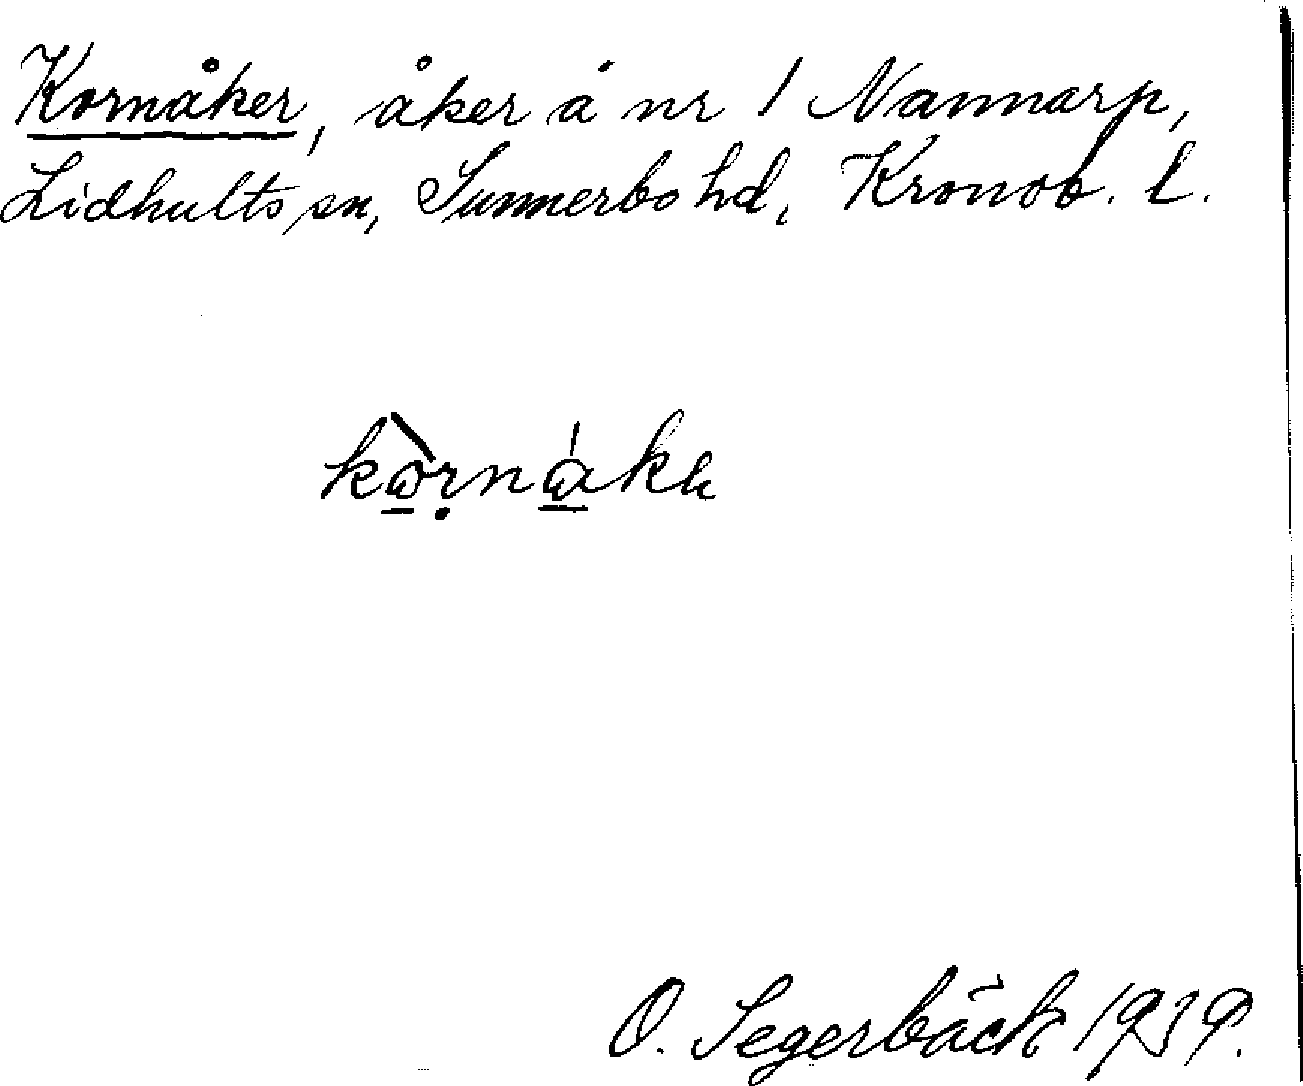 Kornåker, åker å nr 1 Nannarp,
Lidhults sn, Sunnerbo hd, Kronob. l.
O. Segerbäck 1939.